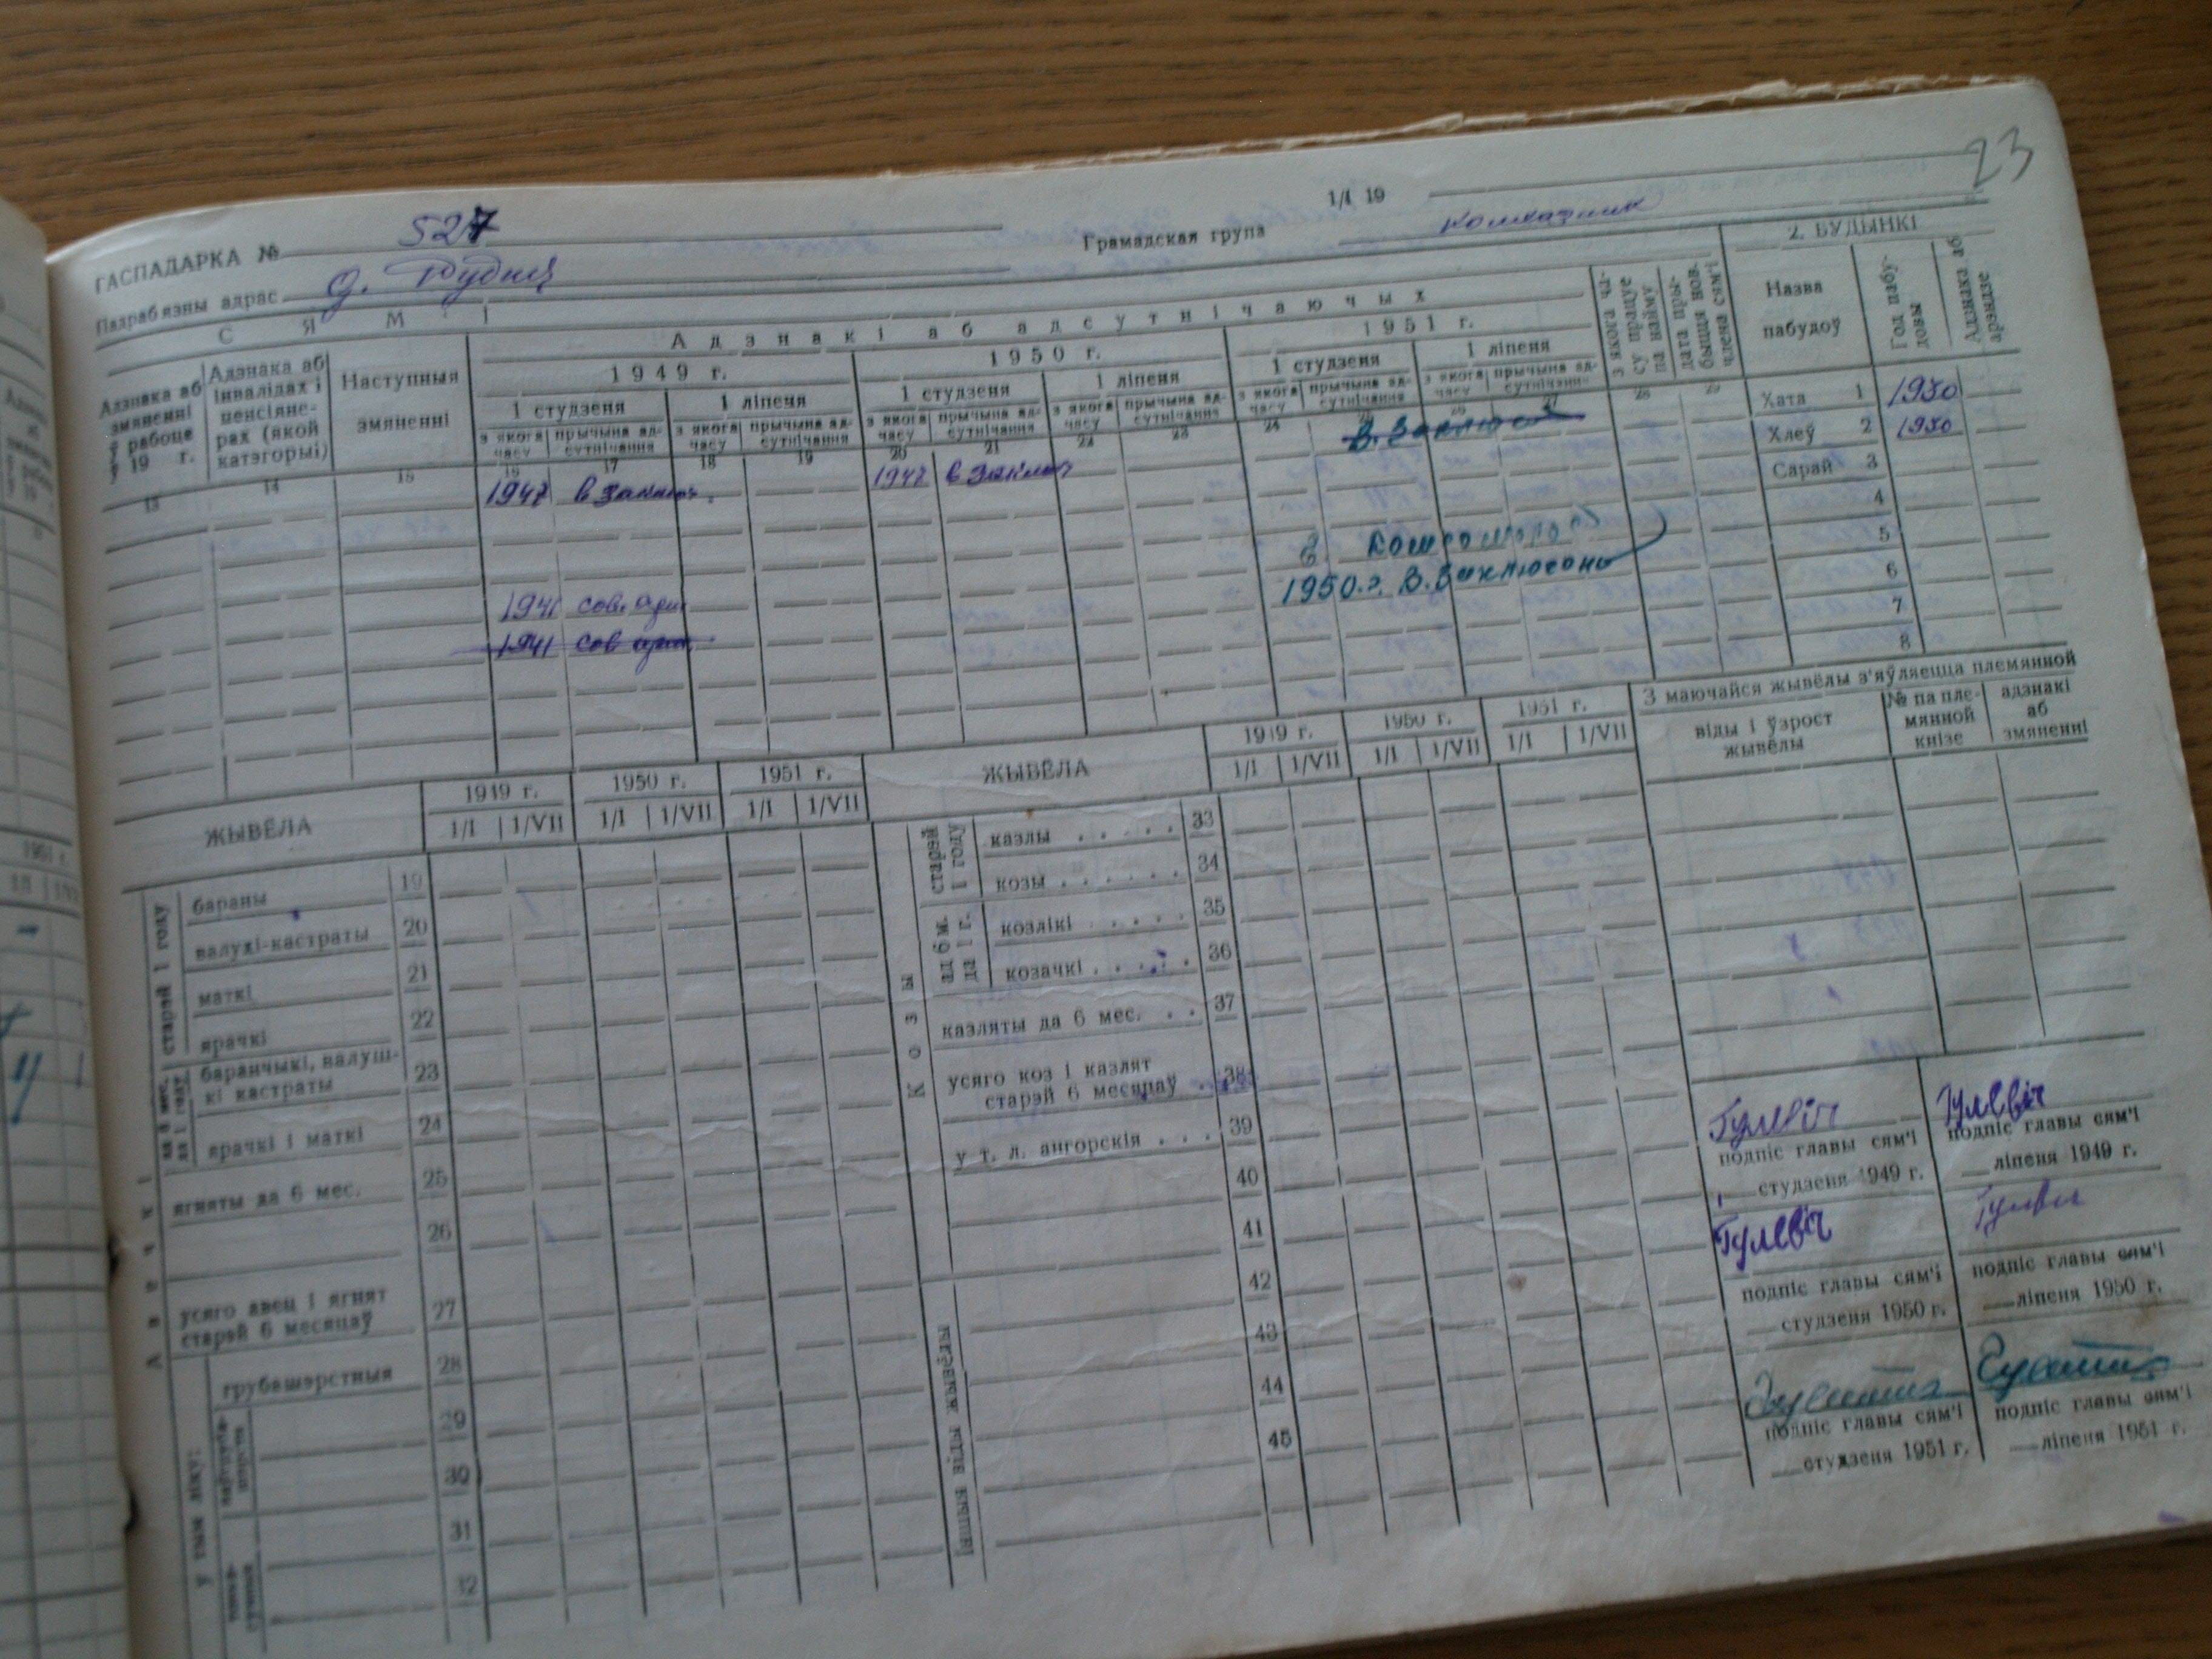 23
ГАСПАДАРКА № 527
1/I 19
Падрабязны адрас д. Рудня
Грамадская група колхозник
СЯМ'І
2. БУДЫНКІ
Адзнака аб змяненні ў рабоце ў 19 г.
Адзнака аб інвалідах і пенсіянерах (якой катэгорыі)
Наступныя змяненні
Адзнакі аб адсутнічаючых
1949 г.
1950 г.
1951 г.
1 студзеня
1 ліпеня
1 студзеня
1 ліпеня
1 студзеня
1 ліпеня
з якога часу
прычына адсутнічання
з якога часу
прычына адсутнічання
з якога часу
прычына адсутнічання
з якога часу
прычына адсутнічання
з якога часу
прычына адсутнічання
з якога часу
прычына адсутнічання
з якога часу працуе па найму
дата прыбыцця нов. члена сям'і
Назва пабудоў
Год пабудовы
Адзнака аб арэндзе
13 14 15 16 17 18 19 20 21 22 23 24 25 26 27 28 29
1947 в заключ.
1947 в заключ
Хата 1 1950
Хлеў 2 1950
Сарай 3
4
5
6
7
8
1950.г. В.Заключены
1941 сов. арм
1941 сов арм.
ЖЫВЁЛА
1949 г.
1950 г.
1951 г.
1/I 1/VII 1/I 1/VII 1/I 1/VII
Авечкі
старэй 1 году
бараны 19
валухі-кастраты 20
маткі 21
ярачкі 22
ад 6 мес. да 1 году
баранчыкі, валушкі кастраты 23
ярачкі і маткі 24
ягняты да 6 мес. 25
26
усяго авец і ягнят старэй 6 месяцаў 27
у тым ліку:
грубашэрстныя 28
29
30
31
32
ЖЫВЁЛА
1949 г.
1950 г.
1951 г.
1/I 1/VII 1/I 1/VII 1/I 1/VII
Козы
старэй 1 году
казлы . . . . . 33
козы . . . . . . 34
ад 6 м. да 1 г.
козлікі . . . . . 35
козачкі . . . . . 36
казляты да 6 мес. . . 37
усяго коз і казлят старэй 6 месяцаў . . 38
у т. л. ангорскія . . . 39
40
41
Іншыя віды жывёлы
42
43
44
45
З маючайся жывёлы з'яўляецца племянной
віды і ўзрост жывёлы
№ па племянной кнізе
адзнакі аб змяненні
Гулевіч
подпіс главы сям'і
студзеня 1949 г.
Гулевіч
подпіс главы сям'і
ліпеня 1949 г.
Гулевіч
подпіс главы сям'і
студзеня 1950 г.
подпіс главы сям'і
ліпеня 1950 г.
подпіс главы сям'і
студзеня 1951 г.
подпіс главы сям'і
ліпеня 1951 г.